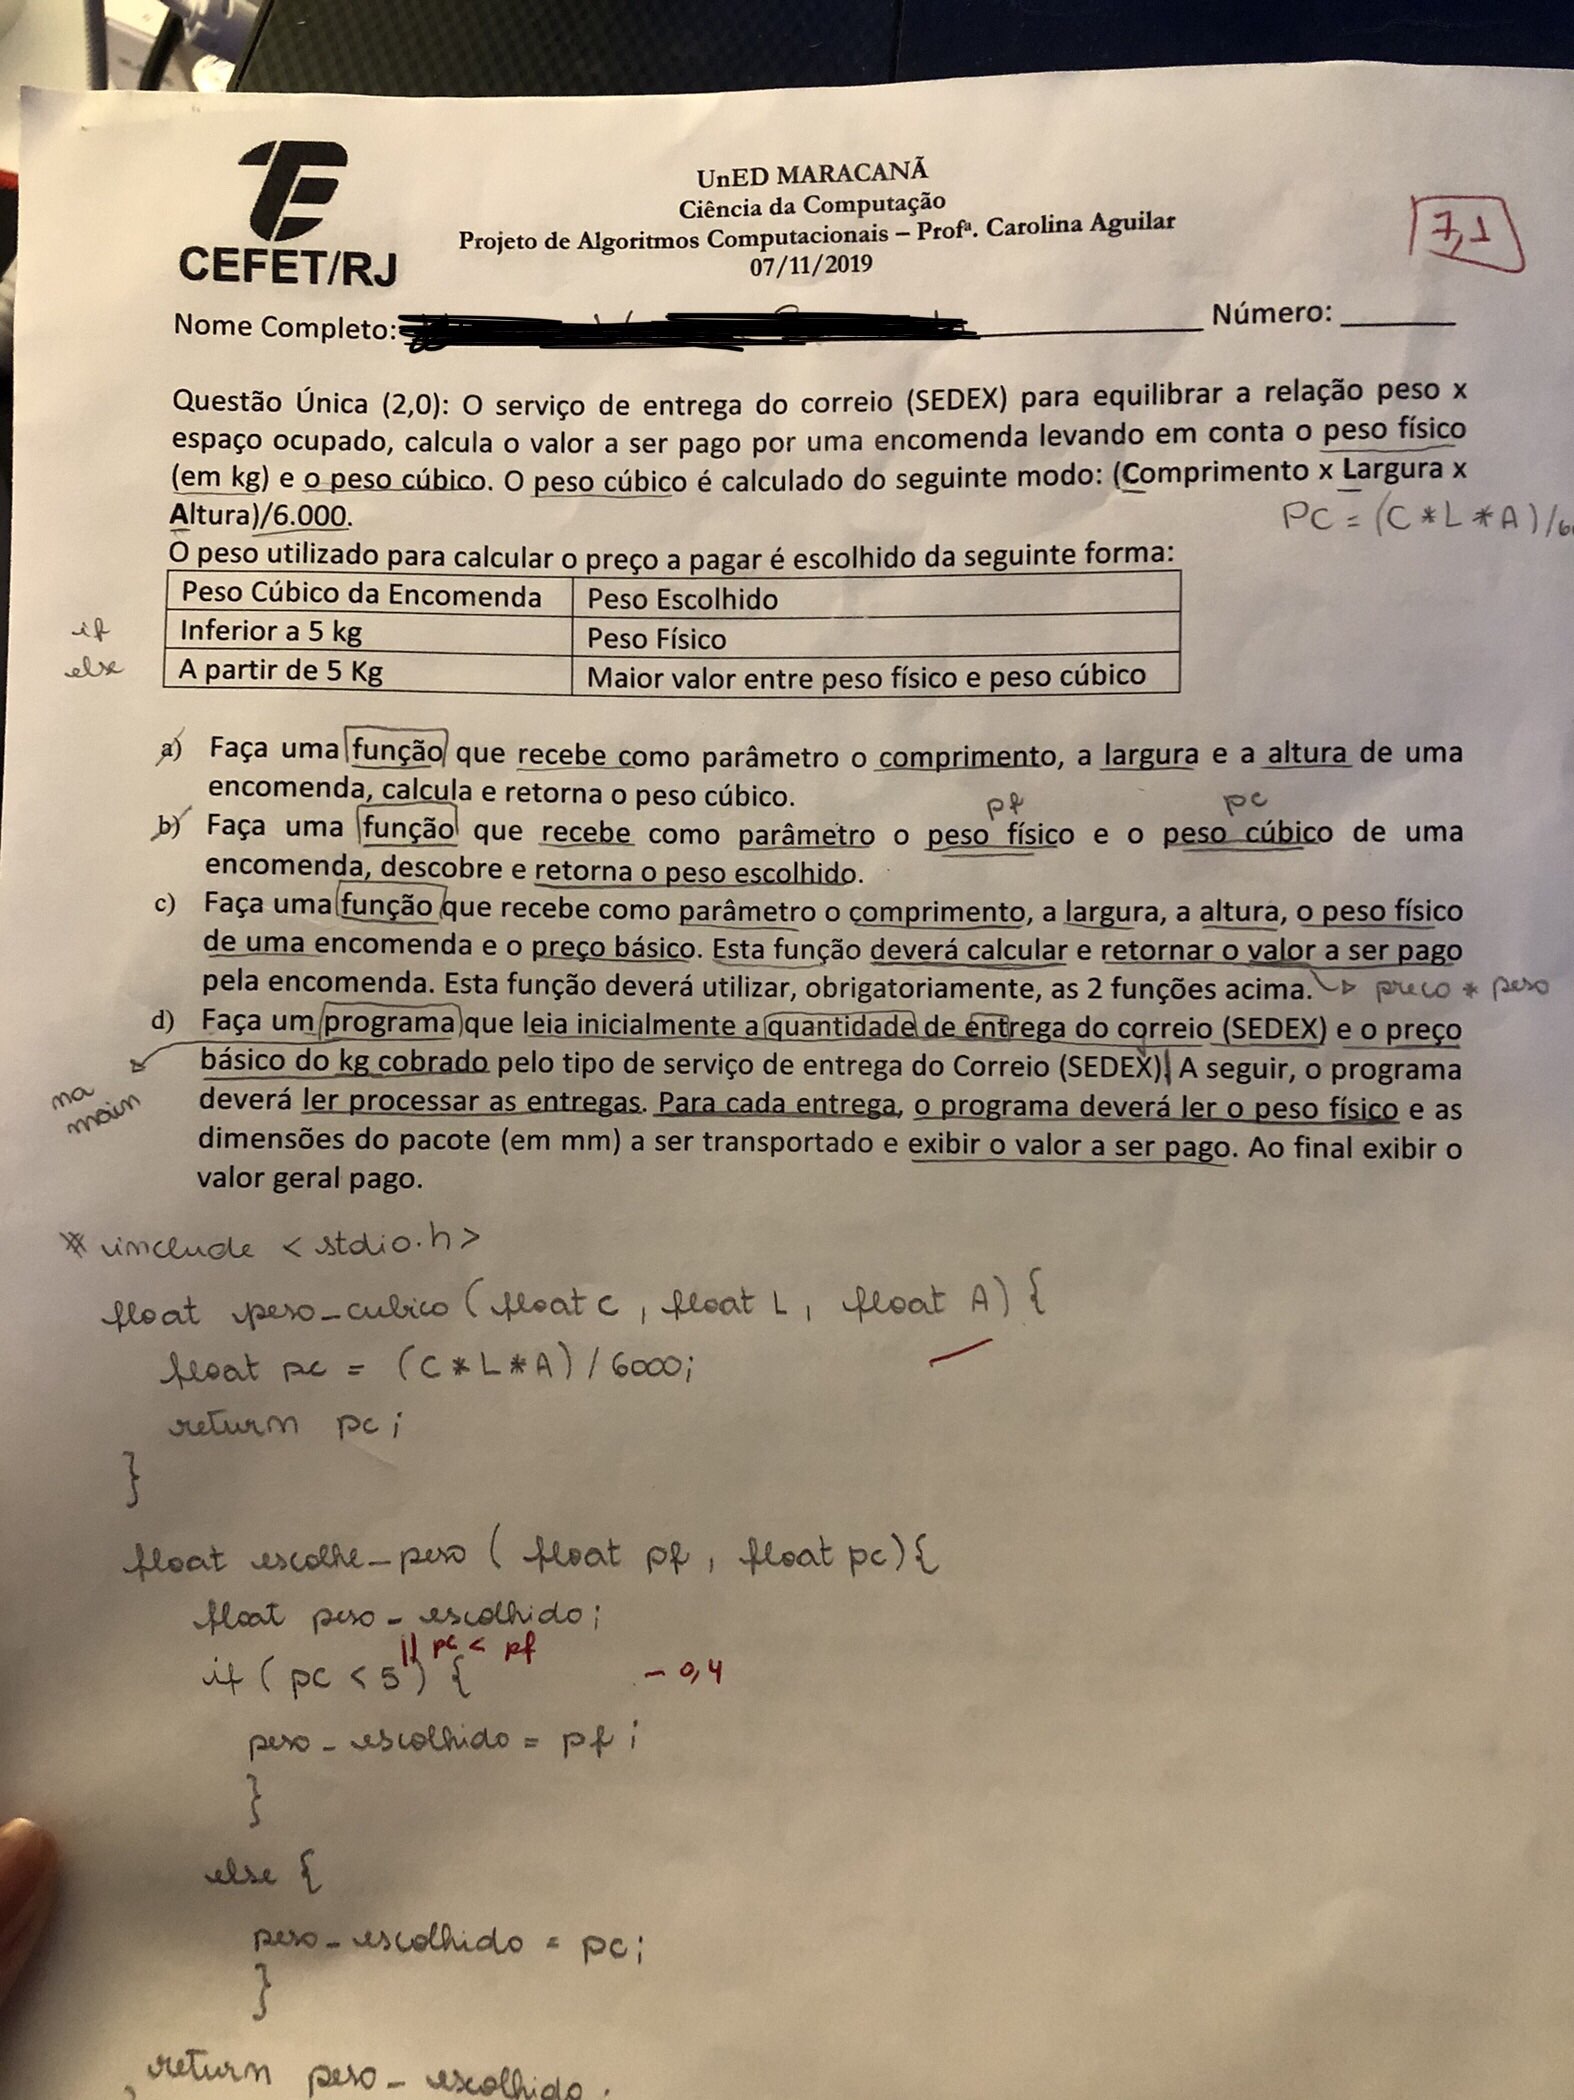 CEFET/RJ
UnED MARACANÃ
Ciência da Computação
Projeto de Algoritmos Computacionais – Profª. Carolina Aguilar
07/11/2019
7,1
Nome Completo:
Número:
Questão Única (2,0): O serviço de entrega do correio (SEDEX) para equilibrar a relação peso x
espaço ocupado, calcula o valor a ser pago por uma encomenda levando em conta o peso físico
(em kg) e o peso cúbico. O peso cúbico é calculado do seguinte modo: (Comprimento x Largura x
Altura)/6.000.
PC = (C * L * A) /
O peso utilizado para calcular o preço a pagar é escolhido da seguinte forma:
Peso Cúbico da Encomenda Peso Escolhido
if Inferior a 5 kg Peso Físico
else A partir de 5 Kg Maior valor entre peso físico e peso cúbico
a) Faça uma função que recebe como parâmetro o comprimento, a largura e a altura de uma
encomenda, calcula e retorna o peso cúbico.
pf pc
b) Faça uma função que recebe como parâmetro o peso físico e o peso cúbico de uma
encomenda, descobre e retorna o peso escolhido.
c) Faça uma função que recebe como parâmetro o comprimento, a largura, a altura, o peso físico
de uma encomenda e o preço básico. Esta função deverá calcular e retornar o valor a ser pago
pela encomenda. Esta função deverá utilizar, obrigatoriamente, as 2 funções acima. preco * peso
d) Faça um programa que leia inicialmente a quantidade de entrega do correio (SEDEX) e o preço
básico do kg cobrado pelo tipo de serviço de entrega do Correio (SEDEX). A seguir, o programa
na
main
deverá ler processar as entregas. Para cada entrega, o programa deverá ler o peso físico e as
dimensões do pacote (em mm) a ser transportado e exibir o valor a ser pago. Ao final exibir o
valor geral pago.
# include < stdio.h >
float peso_cubico ( float C , float L , float A ) {
float pc = (C * L * A) / 6000;
return pc ;
}
float escolhe_peso ( float pf , float pc) {
float peso_escolhido ;
|| pc < pf
if ( pc < 5 ) { - 0,4
peso_escolhido = pf ;
}
else {
peso_escolhido = pc ;
}
return peso_escolhido ;